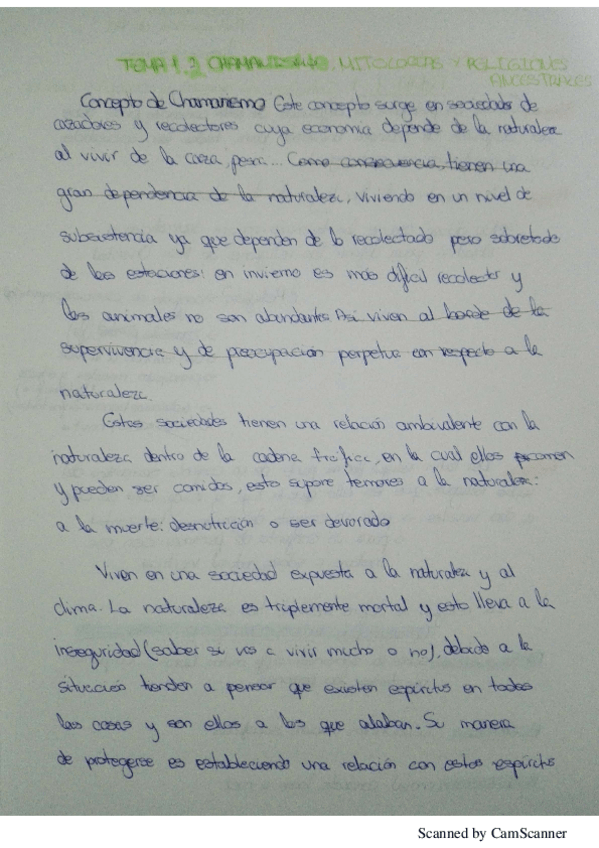 TEMA 1.2 CHAMANISMO. MITOLOGÍAS Y RELIGIONES
ANCESTRALES
Concepto de Chamanismo Este concepto surge en sociedades de
cazadores y recolectores cuya economía depende de la naturaleza
al vivir de la caza, pesca... Como consecuencia, tienen una
gran dependencia de la naturaleza, viviendo en un nivel de
subsistencia ya que dependen de lo recolectado pero sobretodo
de las estaciones: en invierno es más difícil recolectar y
los animales no son abundantes. Así viven al borde de la
supervivencia y de preocupación perpetua con respecto a la
naturaleza.
Estas sociedades tienen una relación ambivalente con la
naturaleza dentro de la cadena trófica, en la cual ellos comen
y pueden ser comidos, esto supone temores a la naturaleza:
a la muerte: desnutrición o ser devorado
Viven en una sociedad expuesta a la naturaleza y al
clima. La naturaleza es triplemente mortal y esto lleva a la
inseguridad (saber si vas a vivir mucho o no), debido a la
situación tienden a pensar que existen espíritus en todas
las cosas y son ellos a los que alaban. Su manera
de protegerse es estableciendo una relación con estos espíritus
Scanned by CamScanner